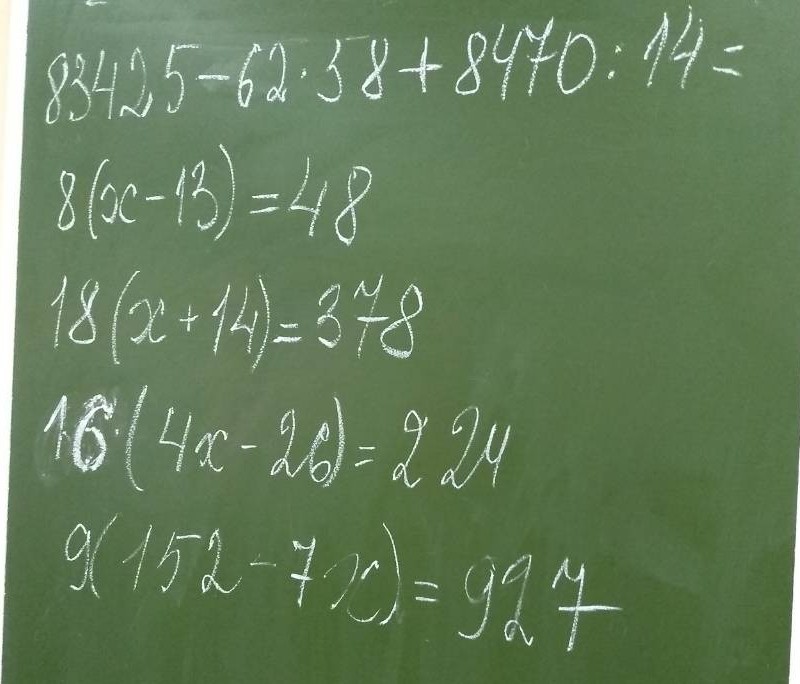 83425-62·58+8470:14=
8(x-13)=48
18(x+14)=378
16·(4x-26)=224
9(152-7x)=927